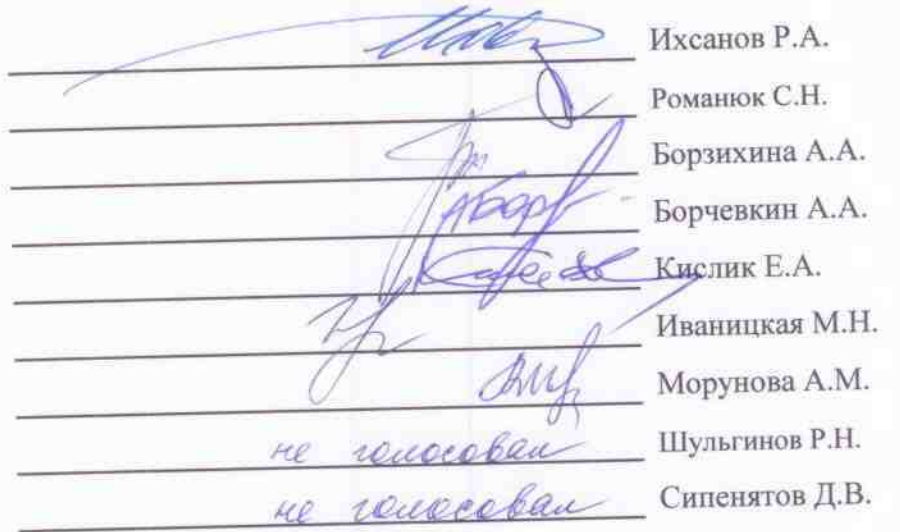 Ихсанов Р.А.
Романюк С.Н.
Борзихина А.А.
Борчевкин А.А.
Кислик Е.А.
Иваницкая М.Н.
Морунова А.М.
не голосовал Шульгинов Р.Н.
не голосовал Сипенятов Д.В.